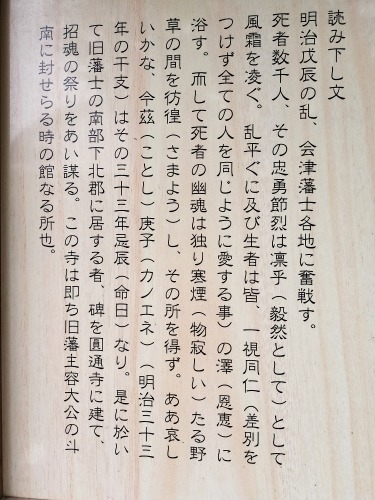 読み下し文
明治戊辰の乱、会津藩士各地に奮戦す。
死者数千人、その忠勇節烈は凛乎(毅然として)として
風霜を凌ぐ。乱平ぐに及び生者は皆、一視同仁(差別を
つけず全ての人を同じように愛する事)の澤(恩恵)に
浴す。而して死者の幽魂は独り寒煙(物寂しい)たる野
草の間を彷徨(さまよう)し、その所を得ず。ああ哀し
いかな、今茲(ことし)庚子(カノエネ)(明治三十三
年の干支)はその三十三年忌辰(命日)なり。是に於い
て旧藩士の南部下北郡に居する者、碑を圓通寺に建て、
招魂の祭りをあい謀る。この寺は即ち旧藩主容大公の斗
南に封せらる時の館なる所也。